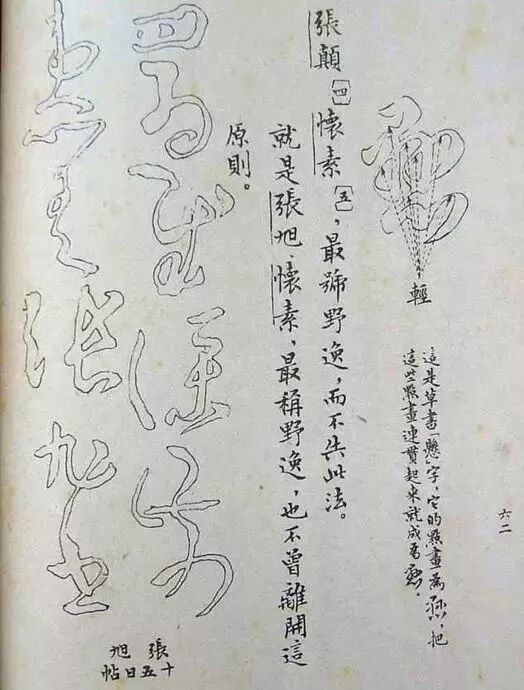 六二
這是草書「懸」字,它的點畫為,把
這些點畫連貫起來就成為。
輕
張顛〔四〕懷素〔五〕,最號野逸,而不失此法。
就是張旭、懷素,最稱野逸,也不曾離開這
原則。
張旭
十五日帖